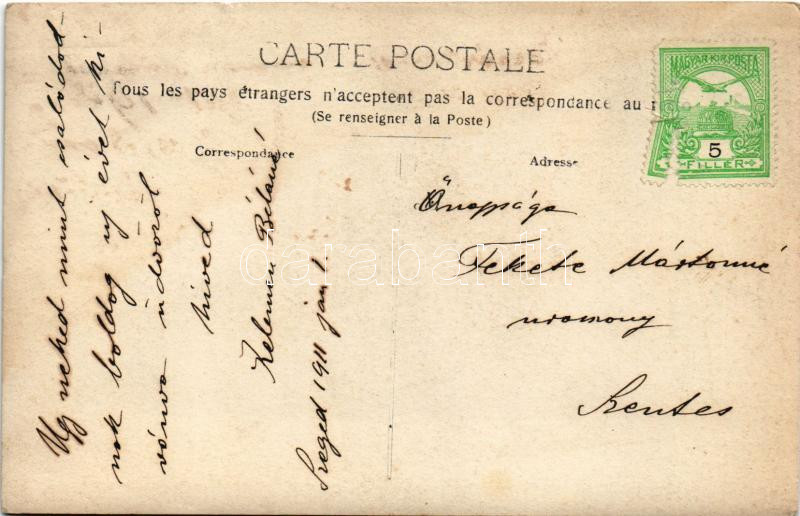 CARTE POSTALE
Tous les pays étrangers n'acceptent pas la correspondance au
(Se renseigner à la Poste)
Correspondance
Adresse
MAGYAR KIR. POSTA
5
FILLÉR
Ugy neked mint családod-
nak boldog uj évet ki-
vánva üdvözöl
hived
Kelemen Béláné
Szeged 1911 jan 1.
Őnagysága
Fekete Mártonné
uraMony
Szentes
darabanth